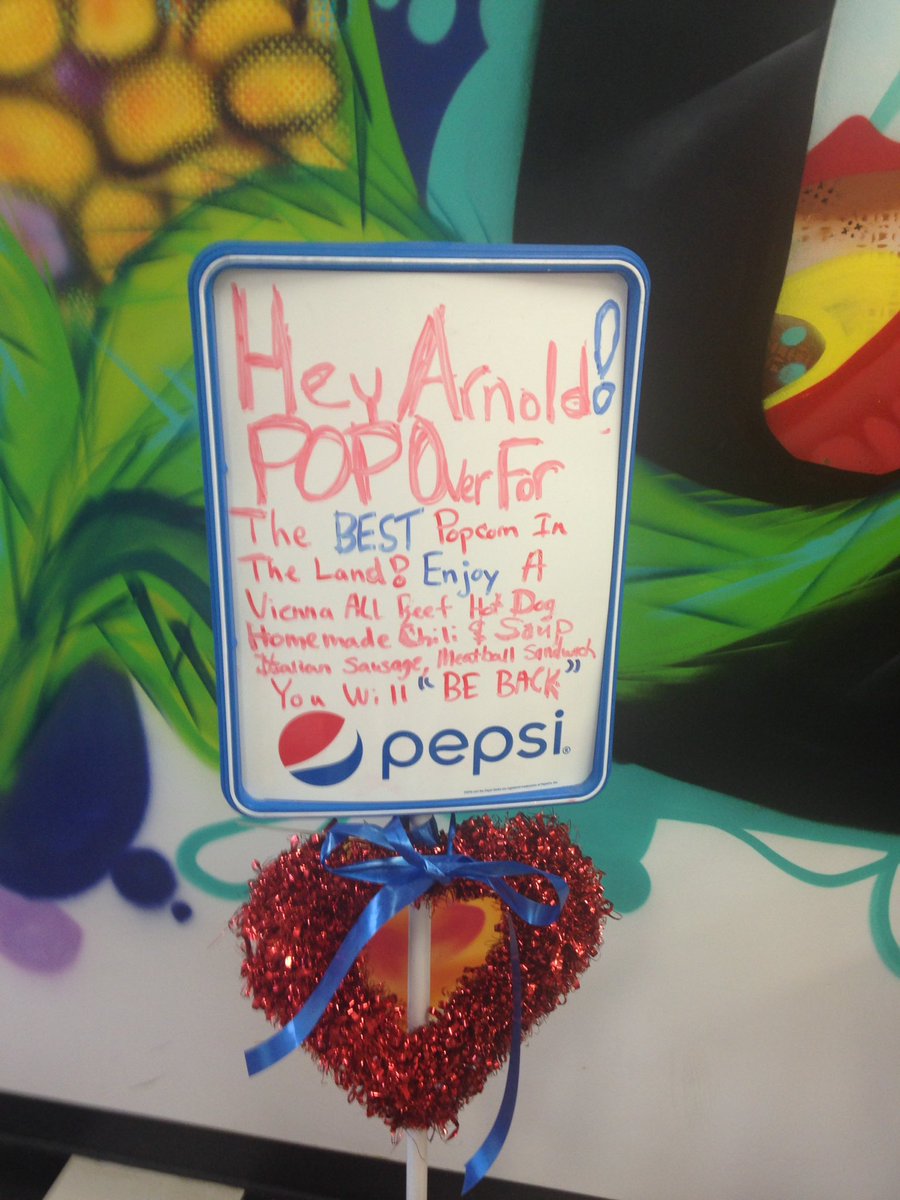 Hey Arnold!
POP Over For
The BEST Popcorn In
The Land! Enjoy A
Vienna All Beef Hot Dog
Homemade Chili & Soup
Italian Sausage, Meatball Sandwich
You Will "BE BACK"
pepsi®